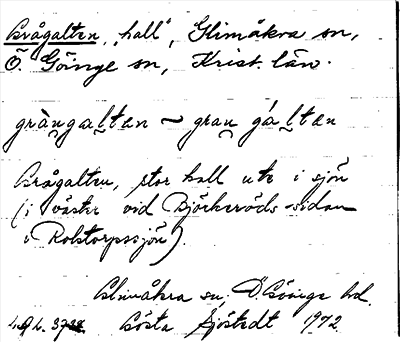 Grågalten, "hall", Glimåkra sn,
Ö. Göinge sn, Krist. län.
gràngaltan ~ grau gáltæn
Grågalten, stor hall ute i sjön
(i väster vid Björkeröds-sidan
i Rolstorpssjön).
Glimåkra sn, Ö. Göinge hd.
Gösta Sjöstedt 1972